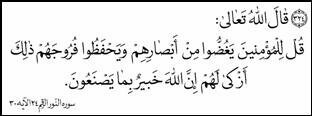 ﴿٣٢٤﴾ قَالَ اللهُ تَعَالىٰ:
قُل لِلْمُؤْمِنِينَ يَغُضُّوا مِنْ أَبْصَارِهِمْ وَيَحْفَظُوا فُرُوجَهُمْ ذٰلِكَ
أَزْكىٰ لَهُمْ إِنَّ اللهَ خَبِيرٌ بِمَا يَصْنَعُونَ.
سوره النّور الكرٖيم ٢٤ الآيه ٣٠